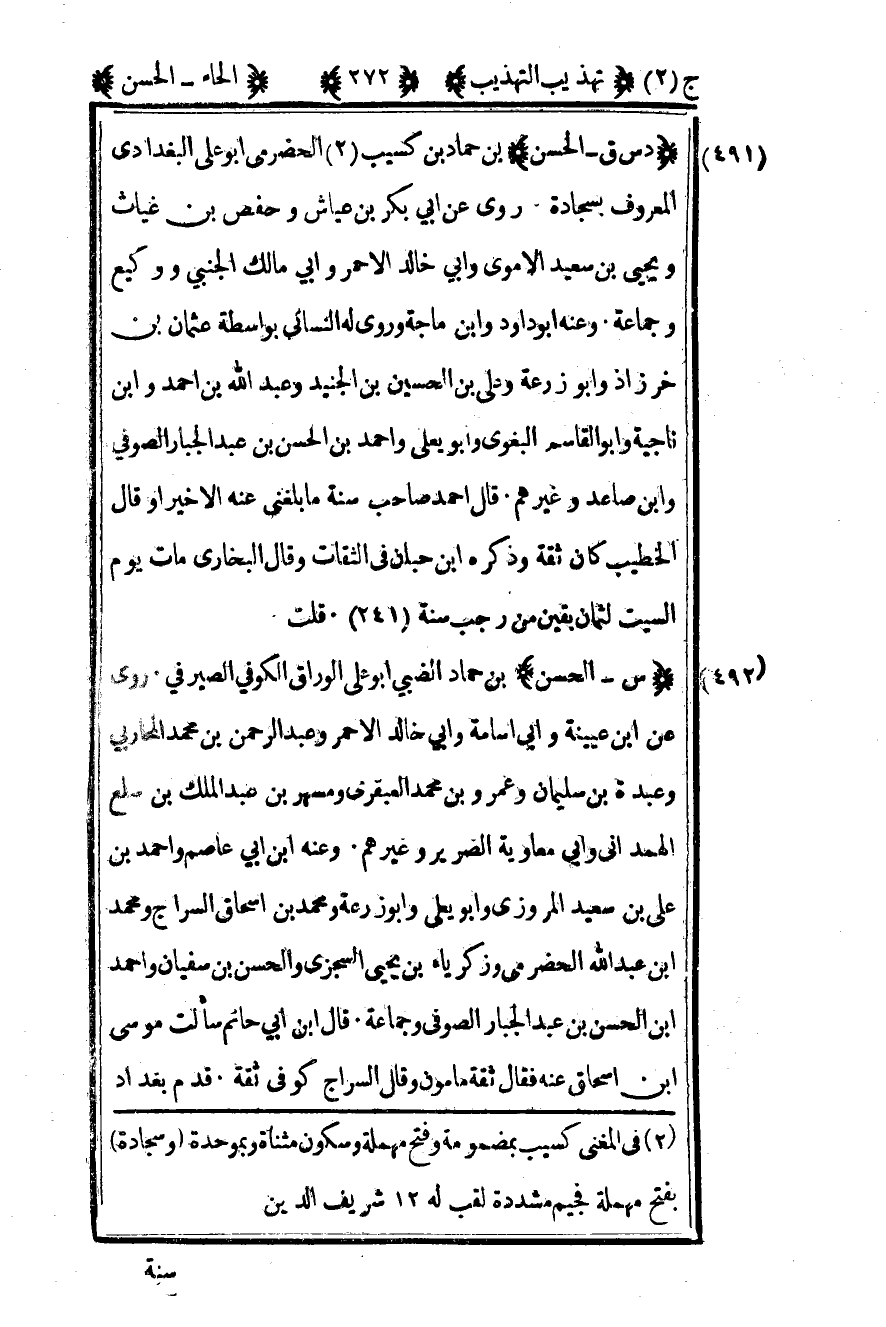 ج (٢) ﴿ تهذيب التهذيب ﴾ ﴿ ٢٧٢ ﴾ ﴿ الحاء - الحسن ﴾
(٤٩١) ﴿ د س ق - الحسن ﴾ بن حماد بن كسيب (٢) الحضرمى ابو على البغدادى
المعروف بسجادة ۰ روى عن ابي بكر بن عياش و حفص بن غياث
و يحيى بن سعيد الاموى وابي خالد الاحمر و ابي مالك الجنبي و وكيع
و جماعة ۰ وعنه ابوداود وابن ماجة وروى له النسائي بواسطة عثمان بن
خرزاذ وابو زرعة وعلى بن الحسين بن الجنيد وعبد الله بن احمد و ابن
ناجية وابوالقاسم البغوى وابو يعلى واحمد بن الحسن بن عبدالجبار الصوفي
وابن صاعد و غيرهم ۰ قال احمد صاحب سنة مابلغني عنه الاخيرا و قال
الخطيب كان ثقة وذكره ابن حبان فى الثقات وقال البخارى مات يوم
السبت لثمان بقين من رجب سنة (٢٤١) ۰ قلت ۰
(٤٩٢) ﴿ س - الحسن ﴾ بن حماد الضبي ابو على الوراق الكوفي الصيرفي ۰ روى
عن ابن عيينة و ابي اسامة وابي خالد الاحمر وعبدالرحمن بن محمد المحاربي
وعبدة بن سليمان وعمرو بن محمد العبقرى ومسهر بن عبدالملك بن سلع
الهمدانى وابي معاوية الضرير و غيرهم ۰ وعنه ابن ابي عاصم واحمد بن
على بن سعيد المروزى وابو يعلى وابوزرعة ومحمد بن اسحاق السراج ومحمد
ابن عبدالله الحضرمى وزكرياء بن يحيى السجزى والحسن بن سفيان واحمد
ابن الحسن بن عبدالجبار الصوفى وجماعة ۰ قال ابن ابي حاتم سألت موسى
ابن اسحاق عنه فقال ثقة مامون وقال السراج كوفى ثقة ۰ قدم بغداد
(٢) فى المغنى كسيب بمضمومة وفتح مهملة وسكون مثناة وبموحدة (وسجادة)
بفتح مهملة فجيم مشددة لقب له ١٢ شريف الدين
سنة